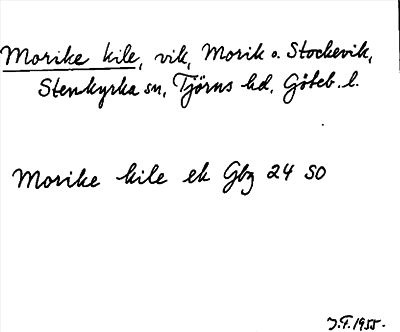 Morike kile, vik, Morik o. Stockevik,
Stenkyrka sn, Tjörns hd, Göteb. l.
Morike kile ek Gbg 24 SO
J.F. 1955.